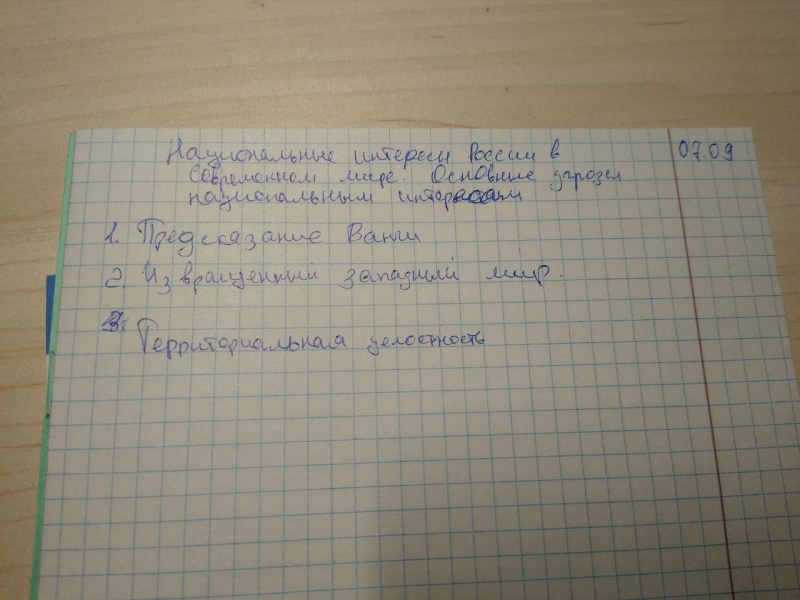 Национальные интересы России в 07.09
Современном мире. Основные угрозы
национальным интересам
1. Предсказание Ванги
2. Извращенный западный мир.
3. Территориальная целостность